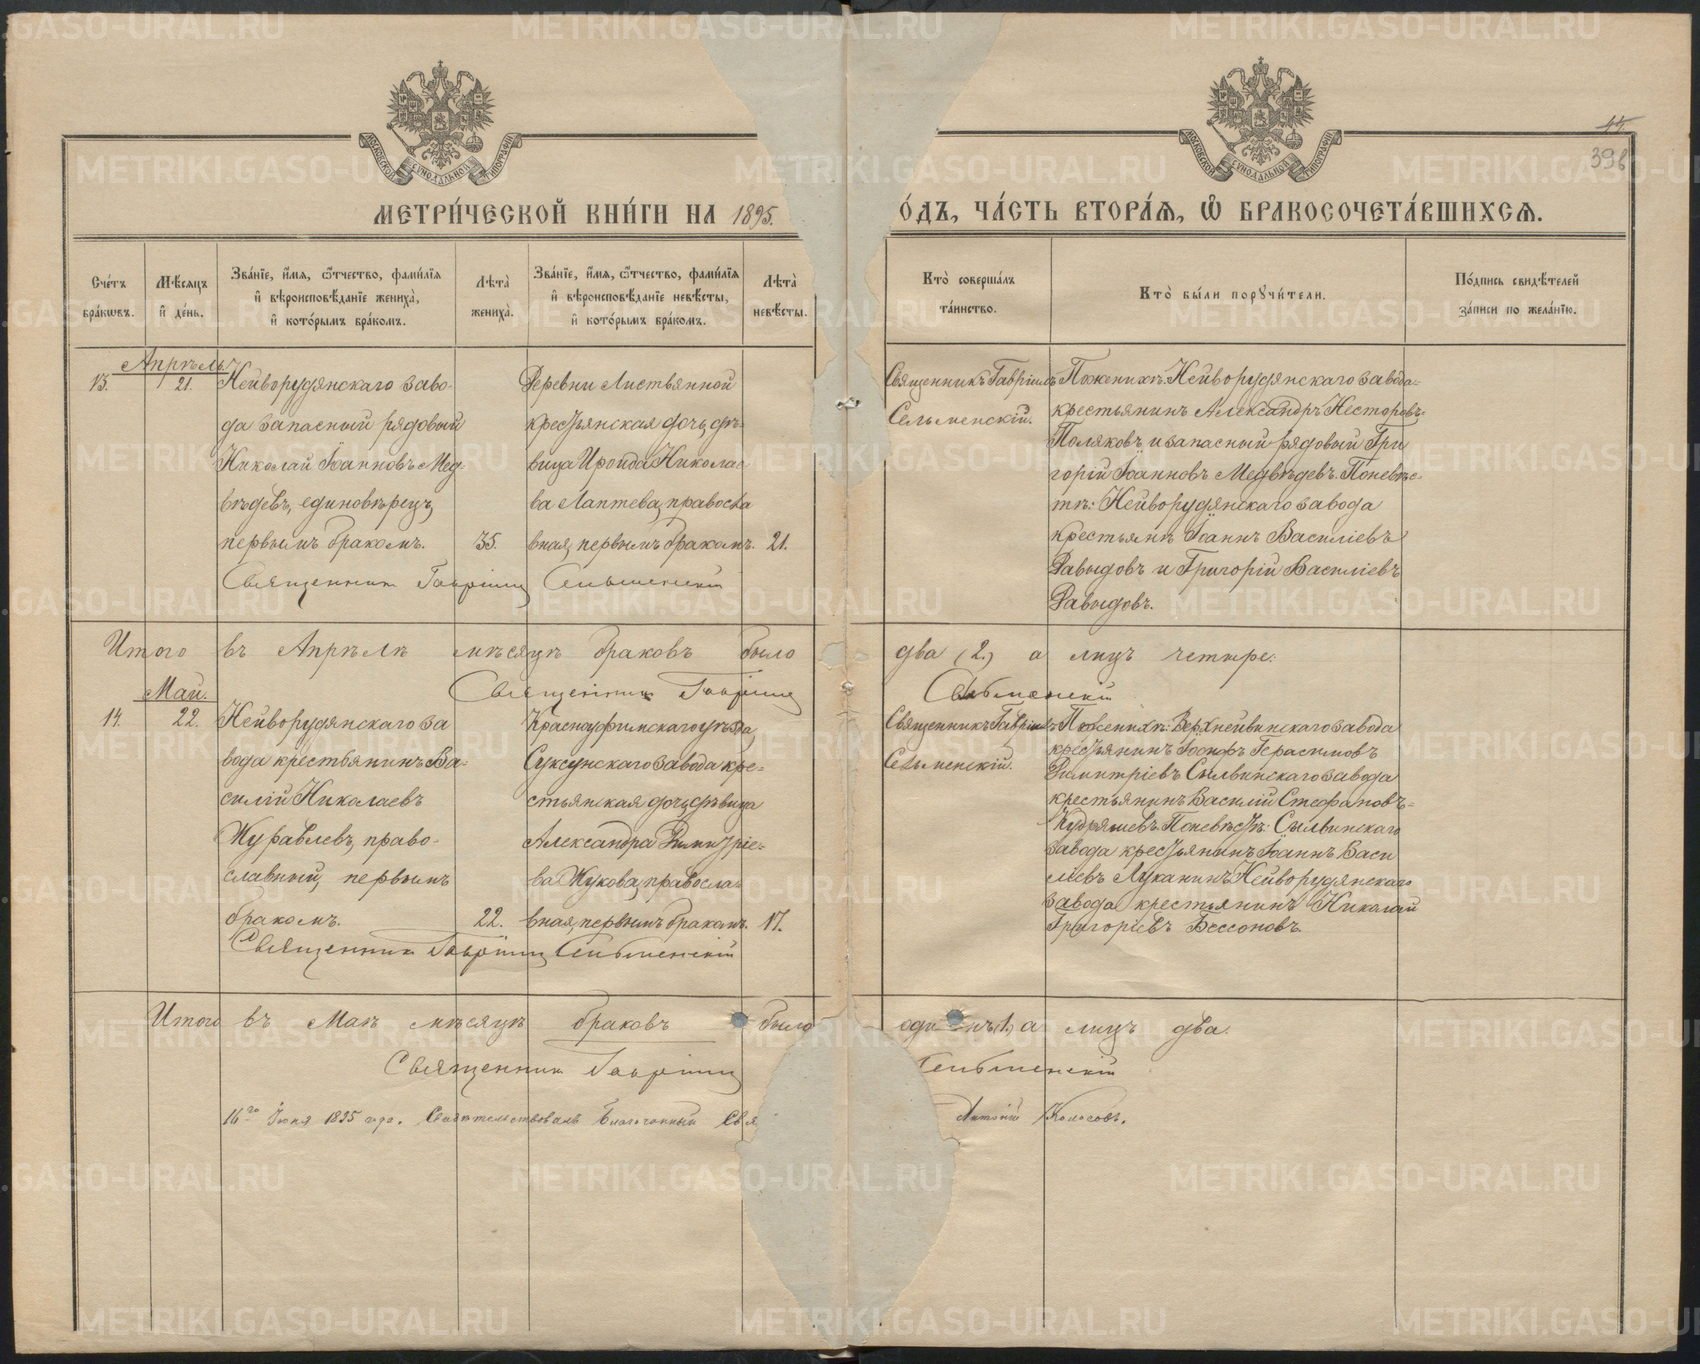 МЕТРИ́ЧЕСКОЙ КНИ́ГИ НА 1895.
О́ДЪ, ЧА́СТЬ ВТОРА́Я, Ѿ БРАКОСОЧЕТА́ВШИХСЯ.
44
396
Сче́тъ бра́кѡвъ.
Мѣ́сяцъ и҆ де́нь.
Зва́нїе, и҆́мя, ѻ҆́тчество, фами́лїя и҆ вѣроисповѣ́данїе жениха̀, и҆ кото́рымъ бра́комъ.
Лѣта̀ жениха̀.
Зва́нїе, и҆́мя, ѻ҆́тчество, фами́лїя и҆ вѣроисповѣ́данїе невѣ́сты, и҆ кото́рымъ бра́комъ.
Лѣта̀ невѣ́сты.
Кто̀ соверша́лъ та́инство.
Кто̀ бы́ли порꙋчи́тели.
По́дпись свидѣ́телей за́писи по жела́нїю.
Апрѣль
13.
21.
Нейворудянскаго заво-
да запасный рядовый
Николай Іоанновъ Мед-
вѣдевъ, единовѣрецъ,
первымъ бракомъ.
35.
Деревни Листвянной
крестьянская дочь, дѣ-
вица Ироида Николае-
ва Лаптева, правосла
вная, первымъ бракомъ.
21.
Священникъ Гавріилъ
Сельменскій.
По женихѣ: Нейворудянскаго завода
крестьянинъ Александръ Несторовъ
Поляковъ и запасный рядовый Гри
горій Іоанновъ Медвѣдевъ. По невѣс-
тѣ: Нейворудянскаго завода
крестьяне Іоаннъ Василіевъ
Давыдовъ и Григорій Василіевъ
Давыдовъ.
Священникъ Гавріилъ Сельменскій
Итого въ Апрѣлѣ мѣсяцѣ браковъ было два (2.) а лицъ четыре.
Священникъ Гавріилъ Сельменскій
Май.
14.
22.
Нейворудянскаго за
вода крестьянинъ Ва-
силій Николаевъ
Журавлевъ, право-
славный, первымъ
бракомъ.
22.
Красноуфимскаго уѣзда,
Суксунскаго завода кре-
стьянская дочь, дѣвица
Александра Димитріе-
ва Жукова, правосла-
вная, первымъ бракомъ.
17.
Священникъ Гавріилъ
Сельменскій.
По женихѣ: Верхнейвинскаго завода
крестьянинъ Іосифъ Герасимовъ
Димитріевъ Сылвинскаго завода
крестьянинъ Василій Стефановъ
Кудряшевъ. По невѣстѣ: Сылвинскаго
завода крестьянинъ Іоаннъ Васи
ліевъ Луканинъ Нейворудянскаго
завода крестьянинъ Николай
Григоріевъ Бессоновъ.
Священникъ Гавріилъ Сельменскій
Итого въ Маѣ мѣсяцѣ браковъ было одинъ (1) а лицъ два.
Священникъ Гавріилъ Сельменскій
16го Іюня 1895 года. Свидѣтельствовалъ Благочинный Свя Антоній Колосовъ.
METRIKI.GASO-URAL.RU